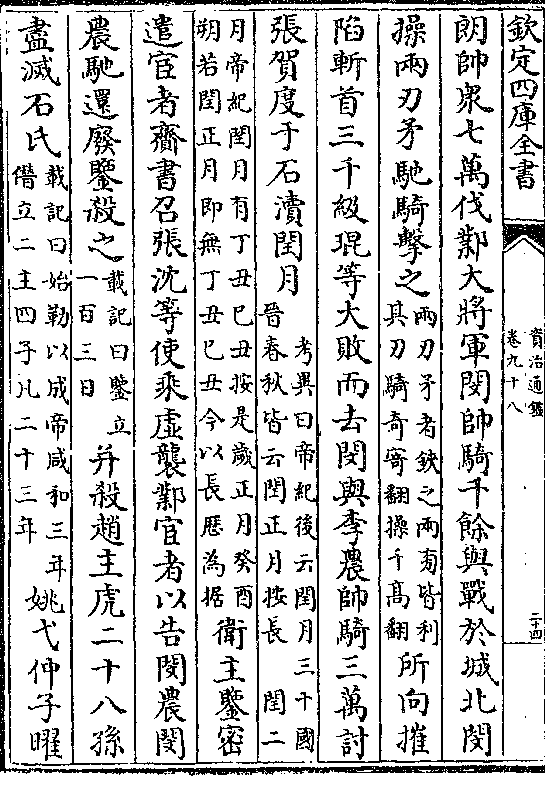 欽定四庫全書
資治通鑑
卷九十八
二十四
朗帥衆七萬伐鄴大將軍閔帥騎千餘與戰於城北閔
操兩刃矛馳騎擊之
兩刃矛者鋏之兩旁皆利
其刃騎奇寄翻操千髙翻
所向摧
陷斬首三千級琨等大敗而去閔與李農帥騎三萬討
張賀度于石瀆閏月
考異曰帝紀後云閏月三十國
晉春秋皆云閏正月按長 閏二
月帝紀閏月有丁丑巳丑按是歲正月癸酉
朔若閏正月即無丁丑巳丑今以長厯為据
衛主鑒密
遣宦者齎書召張沈等使乘虛襲鄴宦者以告閔農閔
農馳還廢鑒殺之
載記曰鑒立
一百三日
并殺趙主虎二十八孫
盡滅石氏
載記曰始勒以成帝咸和三年
僭立二主四子凡二十三年
姚弋仲子曜